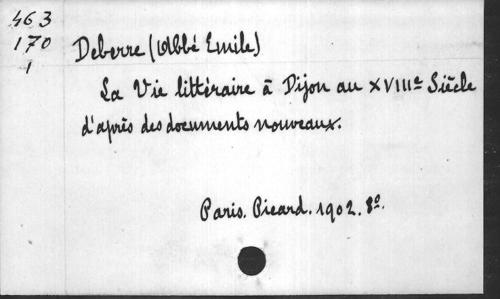 463
170
1
Deberre (Abbé Emile)
La Vie littéraire à Dijon au XVIIIe Siècle
d'après des documents nouveaux.
Paris. Picard. 1902. 8º.